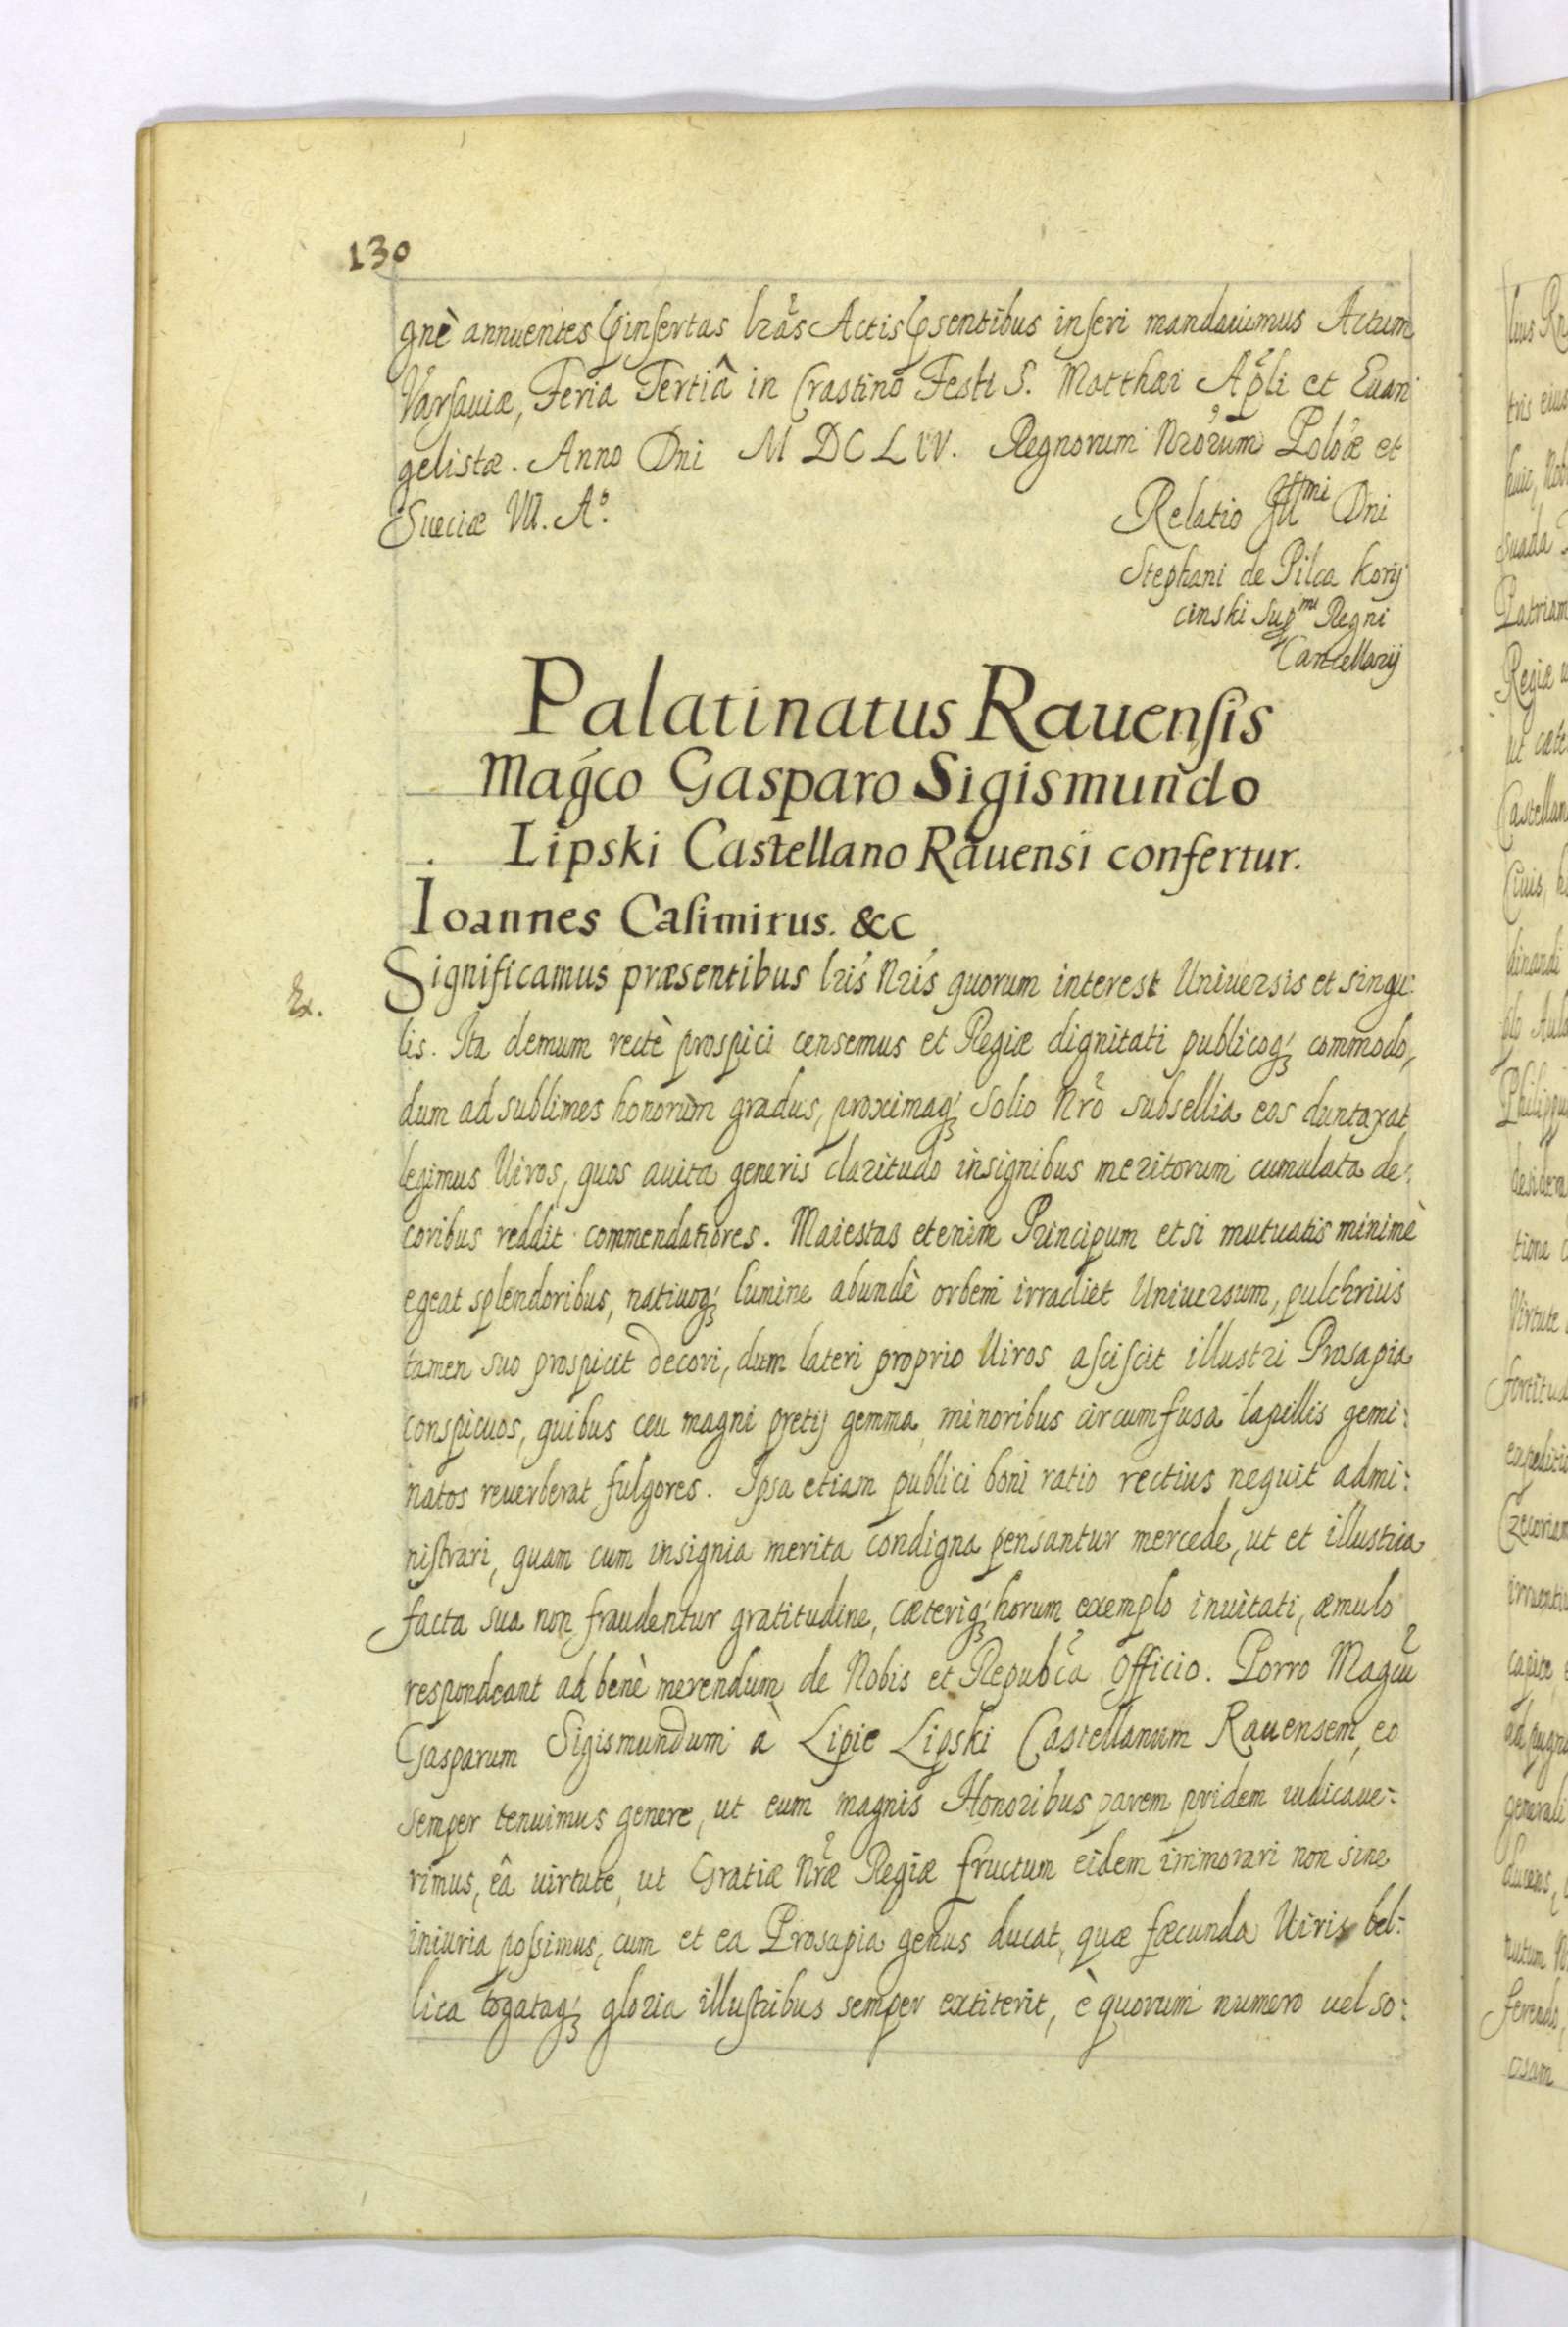 130
gnè annuentes p̱insertas lrãs Actis p̱sentibus inseri mandauimus Actum
Varsauiæ, Feria Tertiâ in Crastino Festi S. Matthæi Apli et Euan
gelistæ. Anno Dni M DC LIV. Regnorum Nrorum Poloæ et
Sueciæ VII. A°.
Relatio Illmi Dni
Stephani de Pilca Kory
cinski Supmi Regni
Cancellarij
Palatinatus Rauensis
Magco Gasparo Sigismundo
Lipski Castellano Rauensi confertur.
Ioannes Casimirus. &c
Ex.
Significamus præsentibus lris Nris quorum interest Uniuersis et singu:
lis. Ita demum rectè prospici censemus et Regiæ dignitati publicoq; commodo,
dum ad sublimes honorum gradus, proximaq; Solio Nro subsellia eos duntaxat
legimus Uiros, quos auita generis claritudo insignibus meritorum cumulata de:
coribus reddit commendatiores. Maiestas etenim Principum etsi mutuatis minimè
egeat splendoribus, natiuoq; lumine abundè orbem irradiet Uniuersum, pulchrius
tamen suo prospicit decori, dum lateri proprio Uiros asciscit illustri Prosapia
conspicuos, quibus ceu magni pretij gemma minoribus circumfusa lapillis gemi:
natos reuerberat fulgores. Ipsa etiam publici boni ratio rectius nequit admi:
nistrari, quam cum insignia merita condigna pensantur mercede, ut et illustria
facta sua non fraudentur gratitudine, cæteriq; horum exemplo inuitati, æmulo
respondeant ad benè merendum de Nobis et Republca Officio. Porro Magcu
Gasparum Sigismundum à Lipie Lipski Castellanum Rauensem, eo
semper tenuimus genere, ut eum magnis Honoribus parem pridem iudicaue:
rimus, eâ uirtute, ut Gratiæ Nræ Regiæ fructum eidem immorari non sine
iniuria possimus, cum et ea Prosapia genus ducat, quæ fæcunda Uiris bel:
lica togataq; gloria illustribus semper extiterit, è quorum numero uel so: